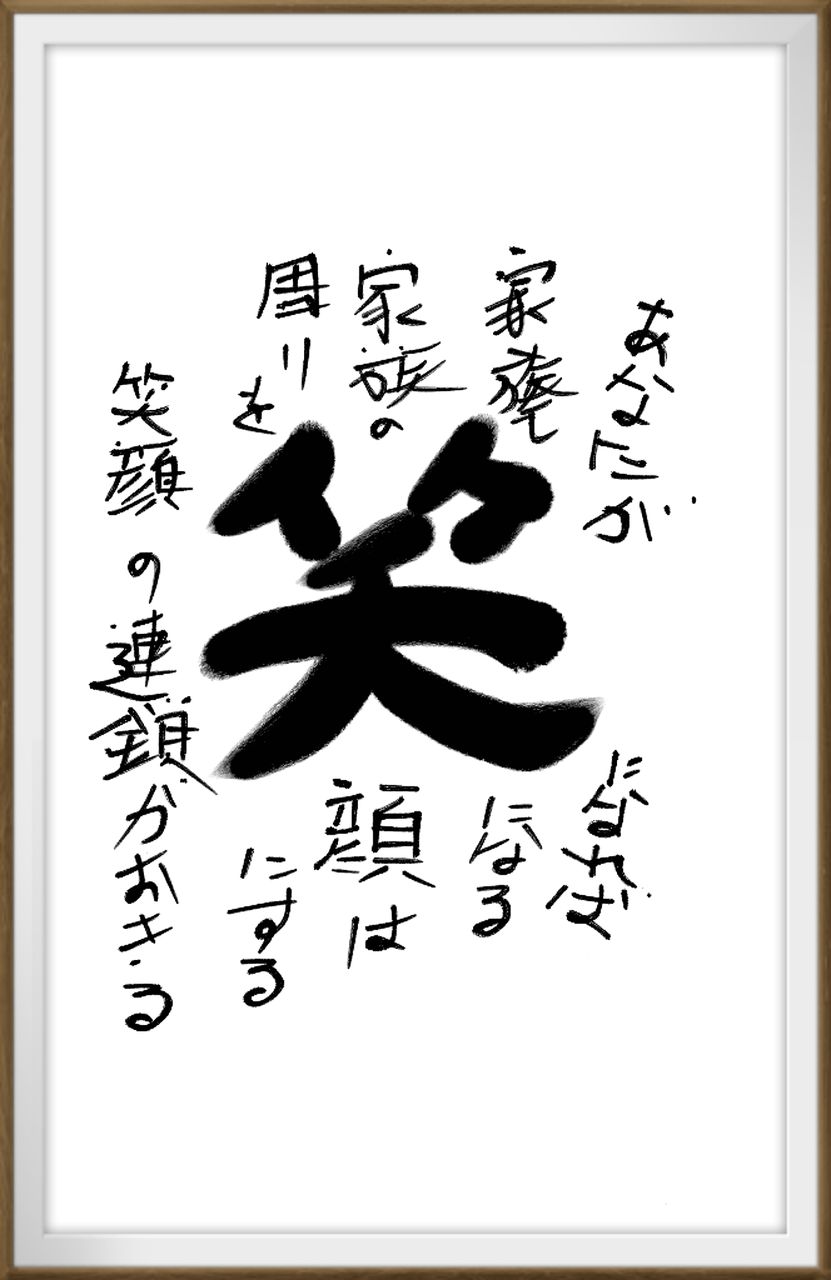 あなたが になれば
家族も になる
家族の笑顔は
周りを にする
笑顔の連鎖がおきる